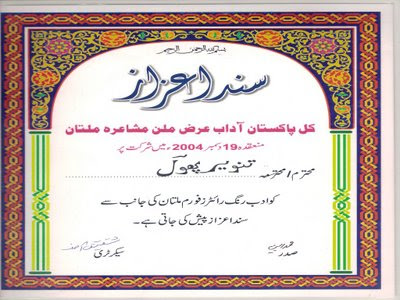 بسم اللہ الرحمن الرحیم
سند اعزاز
کل پاکستان آداب عرض ملن مشاعرہ ملتان
منعقدہ 19 دسمبر 2004ء میں شرکت پر
محترم / محترمہ تنویر پھول
کو ادب رنگ رائٹرز فورم ملتان کی جانب سے
سند اعزاز پیش کی جاتی ہے۔
سیکرٹری
صدر